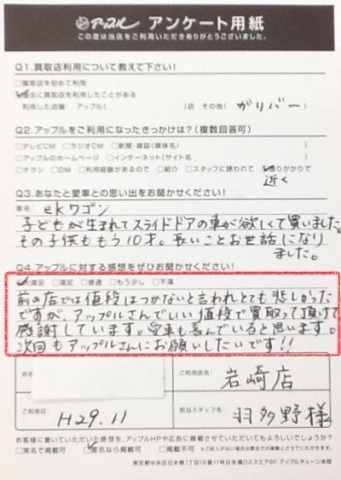 アップル アンケート用紙
この度は当店をご利用いただきありがとうございました。
Q1.買取店利用について教えて下さい!
□買取店を初めて利用
□過去に買取店を利用したことがある
利用した店舗: アップル( )店 その他( ガリバー )
Q2.アップルをご利用になったきっかけは?(複数回答可)
□テレビCM □ラジオCM □新聞・雑誌(媒体名/ )
□アップルのホームページ □インターネット(サイト名 )
□チラシ □DM □利用経験があるので □紹介 □スタッフに誘われて □通りがかりで
近く
Q3.あなたと愛車との思い出をお聞かせください!
車名: ekワゴン
子どもが生まれてスライドドアの車が欲しくて買いました。
その子供ももう10才。長いことお世話になり
ました。
Q4.アップルに対する感想をぜひお聞かせください!
□大満足 □満足 □普通 □もう少し □不満
前の店では値段はつかないと言われとても悲しかった
ですが、アップルさんでいい値段で買取って頂けて
感謝しています。愛車も喜んでいると思います。
次回もアップルさんにお願いしたいです!!
ご利用店名
岩崎店
ご利用日
H29.11
担当スタッフ名
羽多野様
お客様に書いていただいた感想を、アップルHPや広告に掲載させていただいてもよろしいでしょうか?
□実名で掲載可 □匿名なら掲載可 □掲載不可
東京都中央区日本橋1丁目16番11号日本橋Dスクエア5F アップルチェーン本部